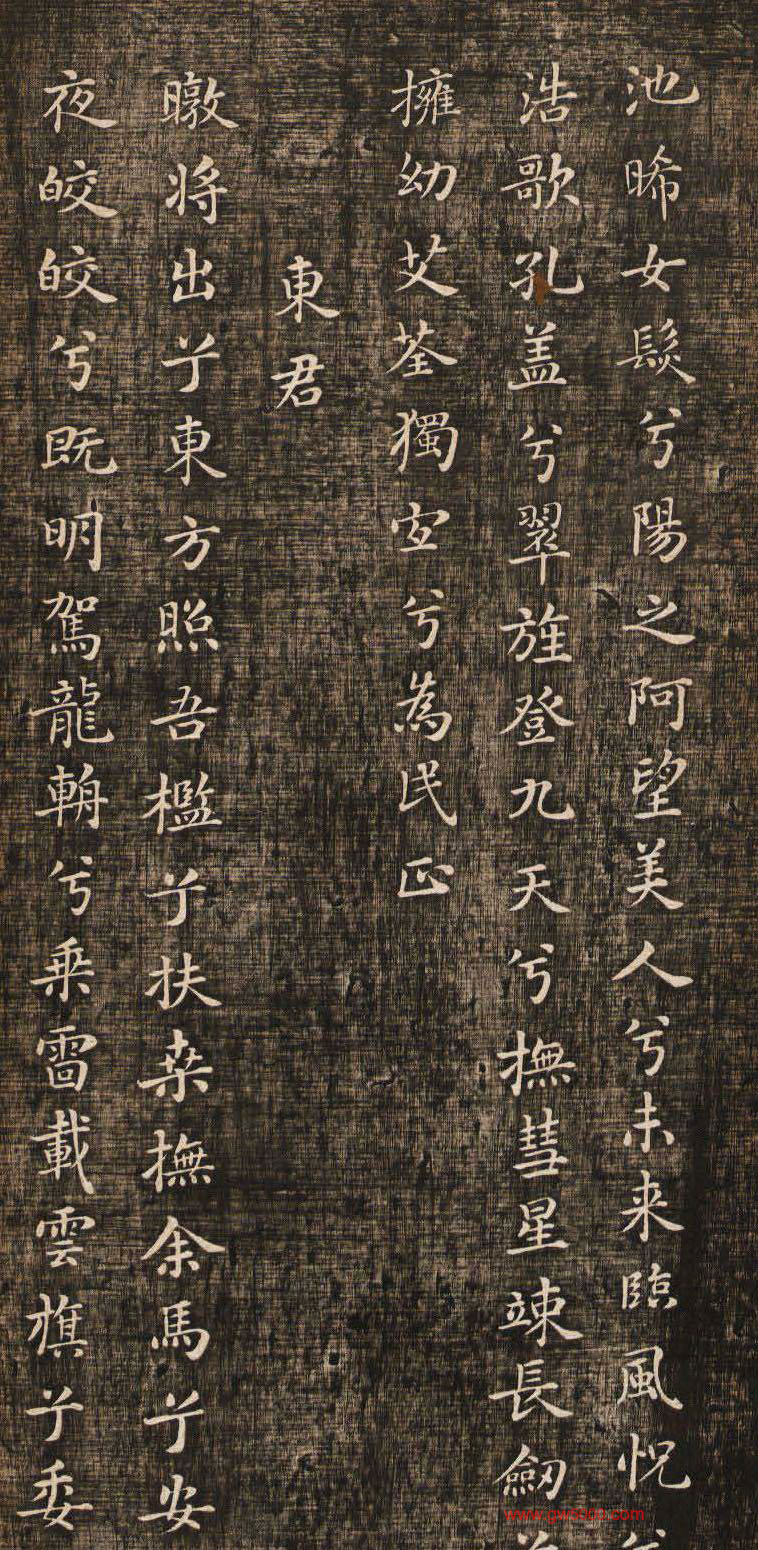 池晞女髮兮陽之阿望美人兮未来臨風怳
浩歌孔盖兮翠旌登九天兮撫彗星竦長劒
擁幼艾荃獨宜兮為民正
東君
暾将出兮東方照吾檻兮扶桒撫余馬兮安
夜皎皎兮既明駕龍輈兮乗雷載雲旗兮委